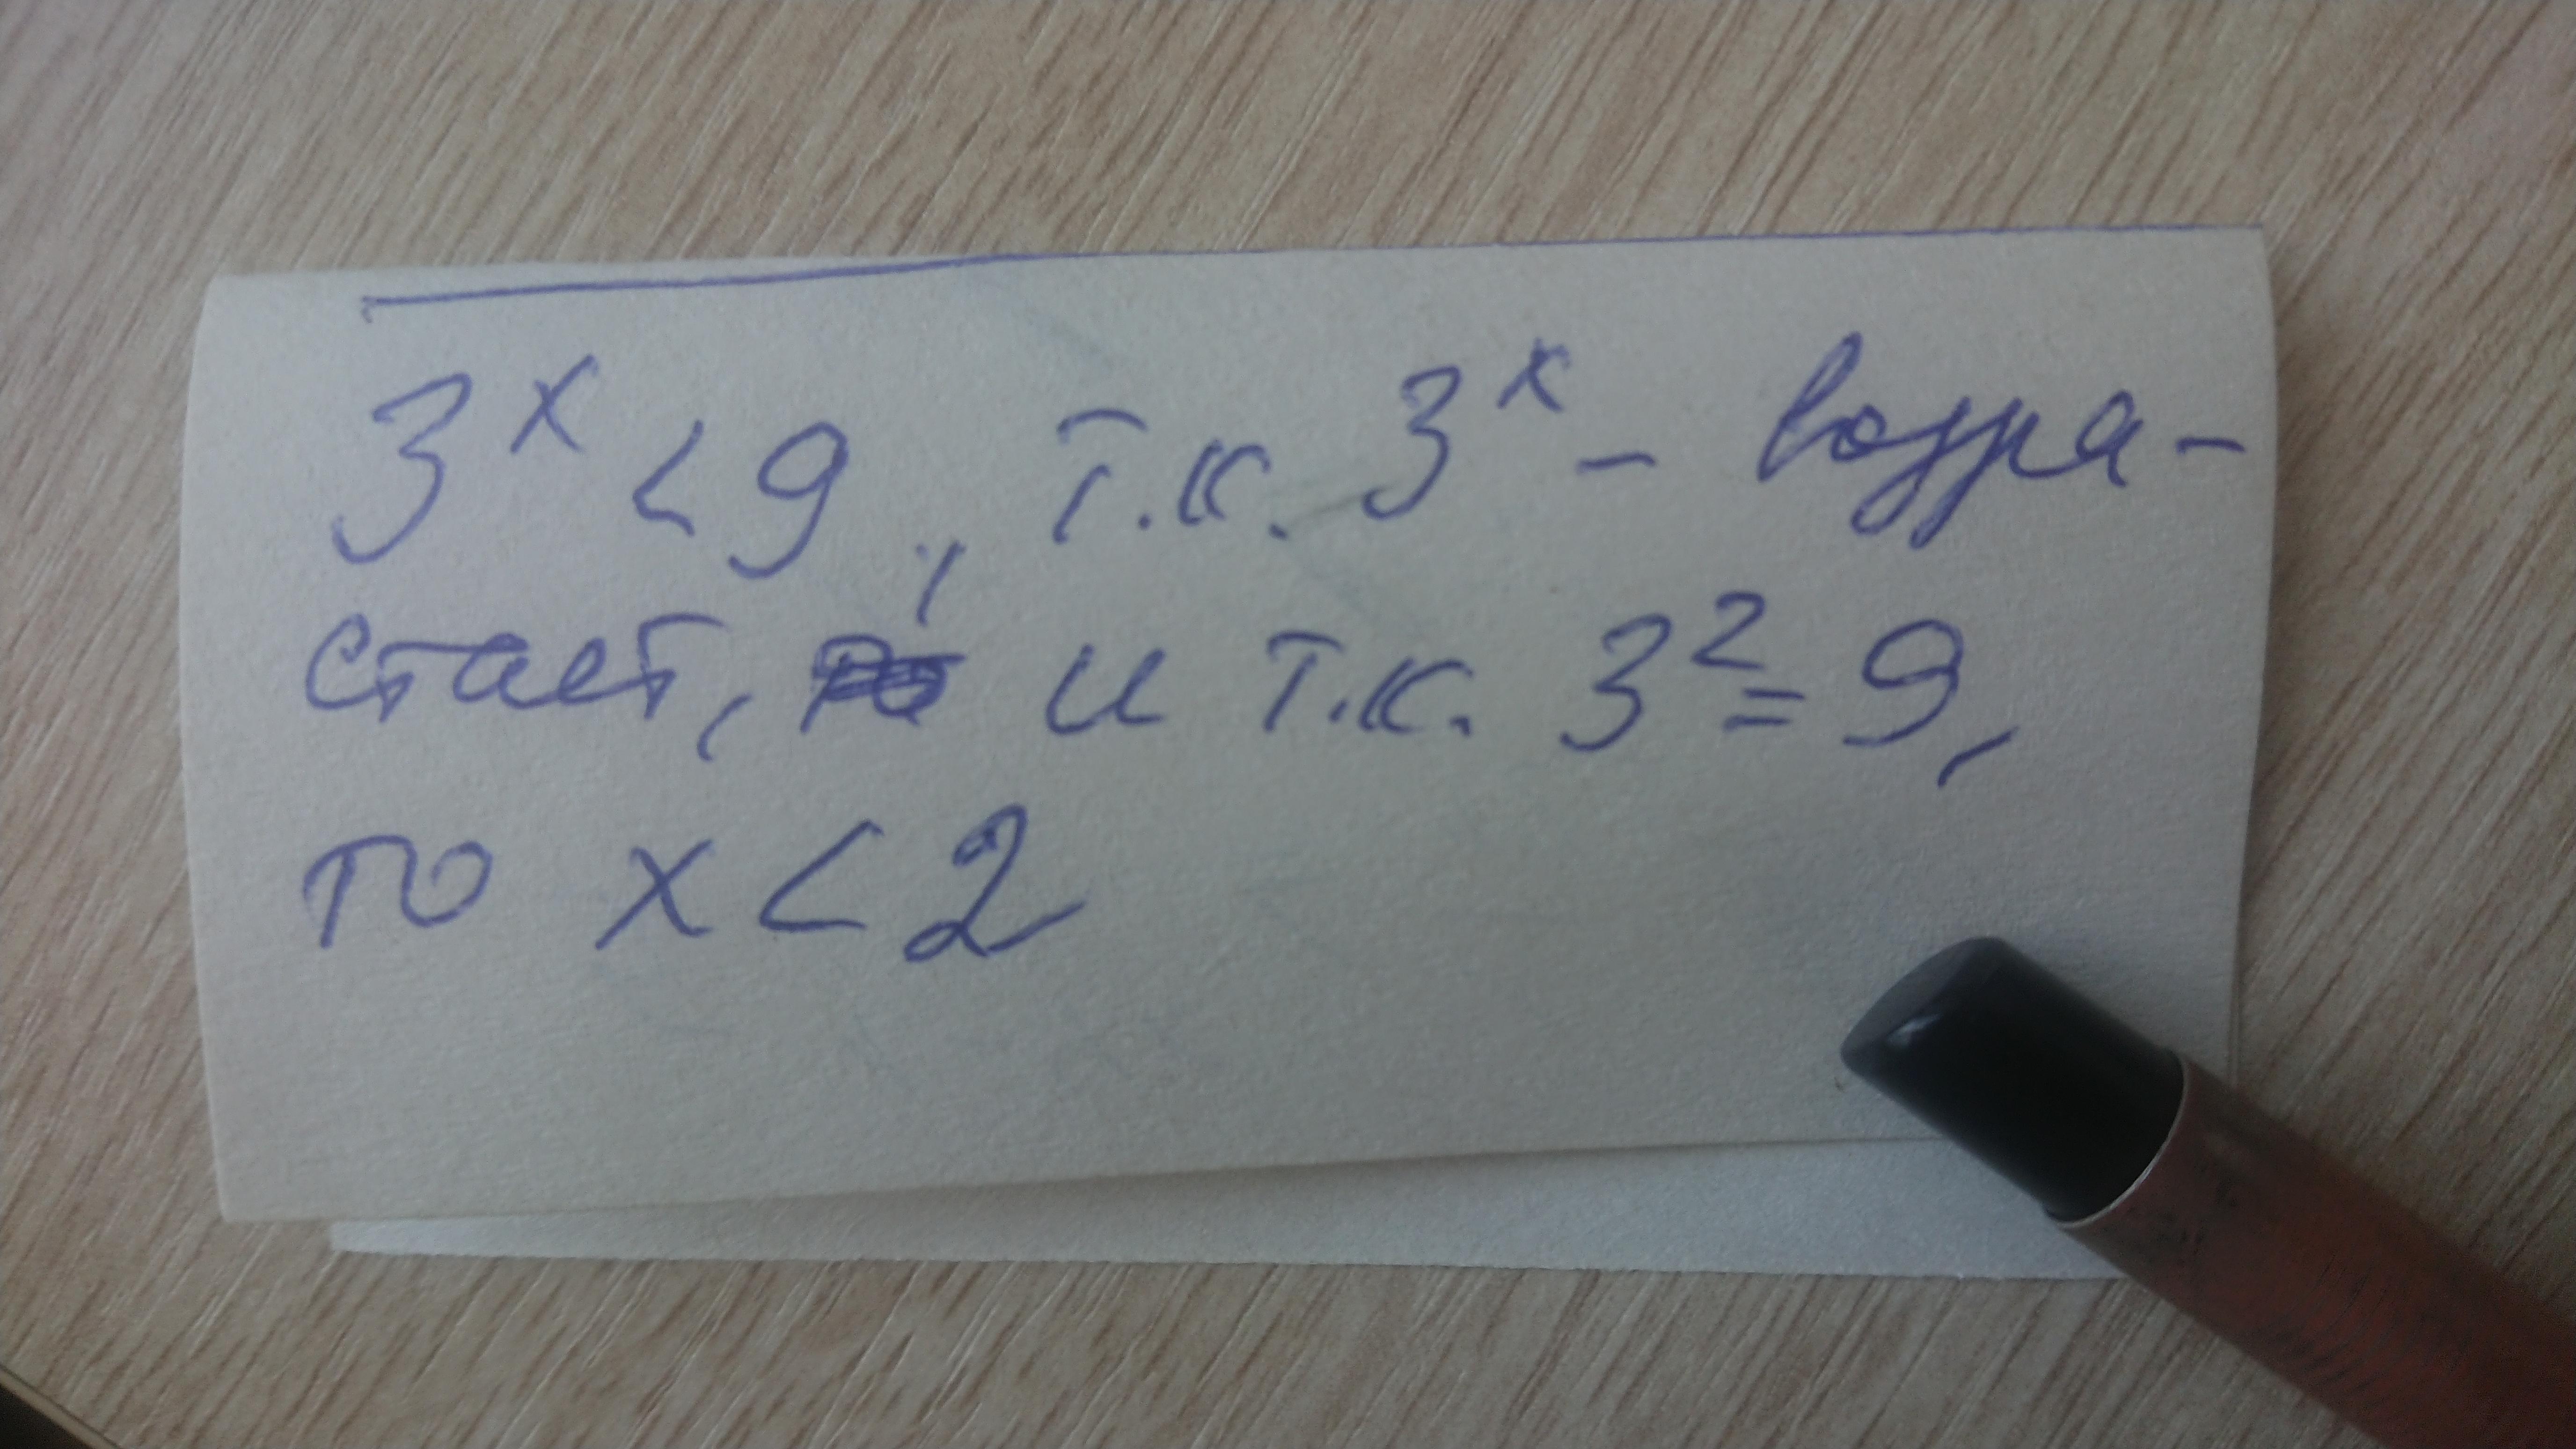 3ˣ < 9, т.к. 3ˣ – возра-
стает, и т.к. 3² = 9,
то x < 2